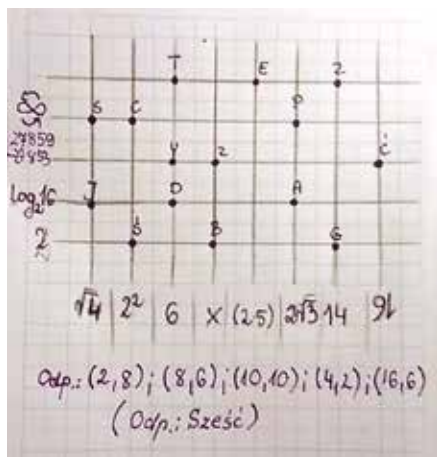 T E Z
S C P
27859
Y Z Ć
log₂16 J D A
2 Ś B G
√4 | 2² | 6 | X | (2·5) | 2√3 14
Odp.: (2,8); (8,6); (10,10); (4,2); (16,6)
(Odp.: Sześć)